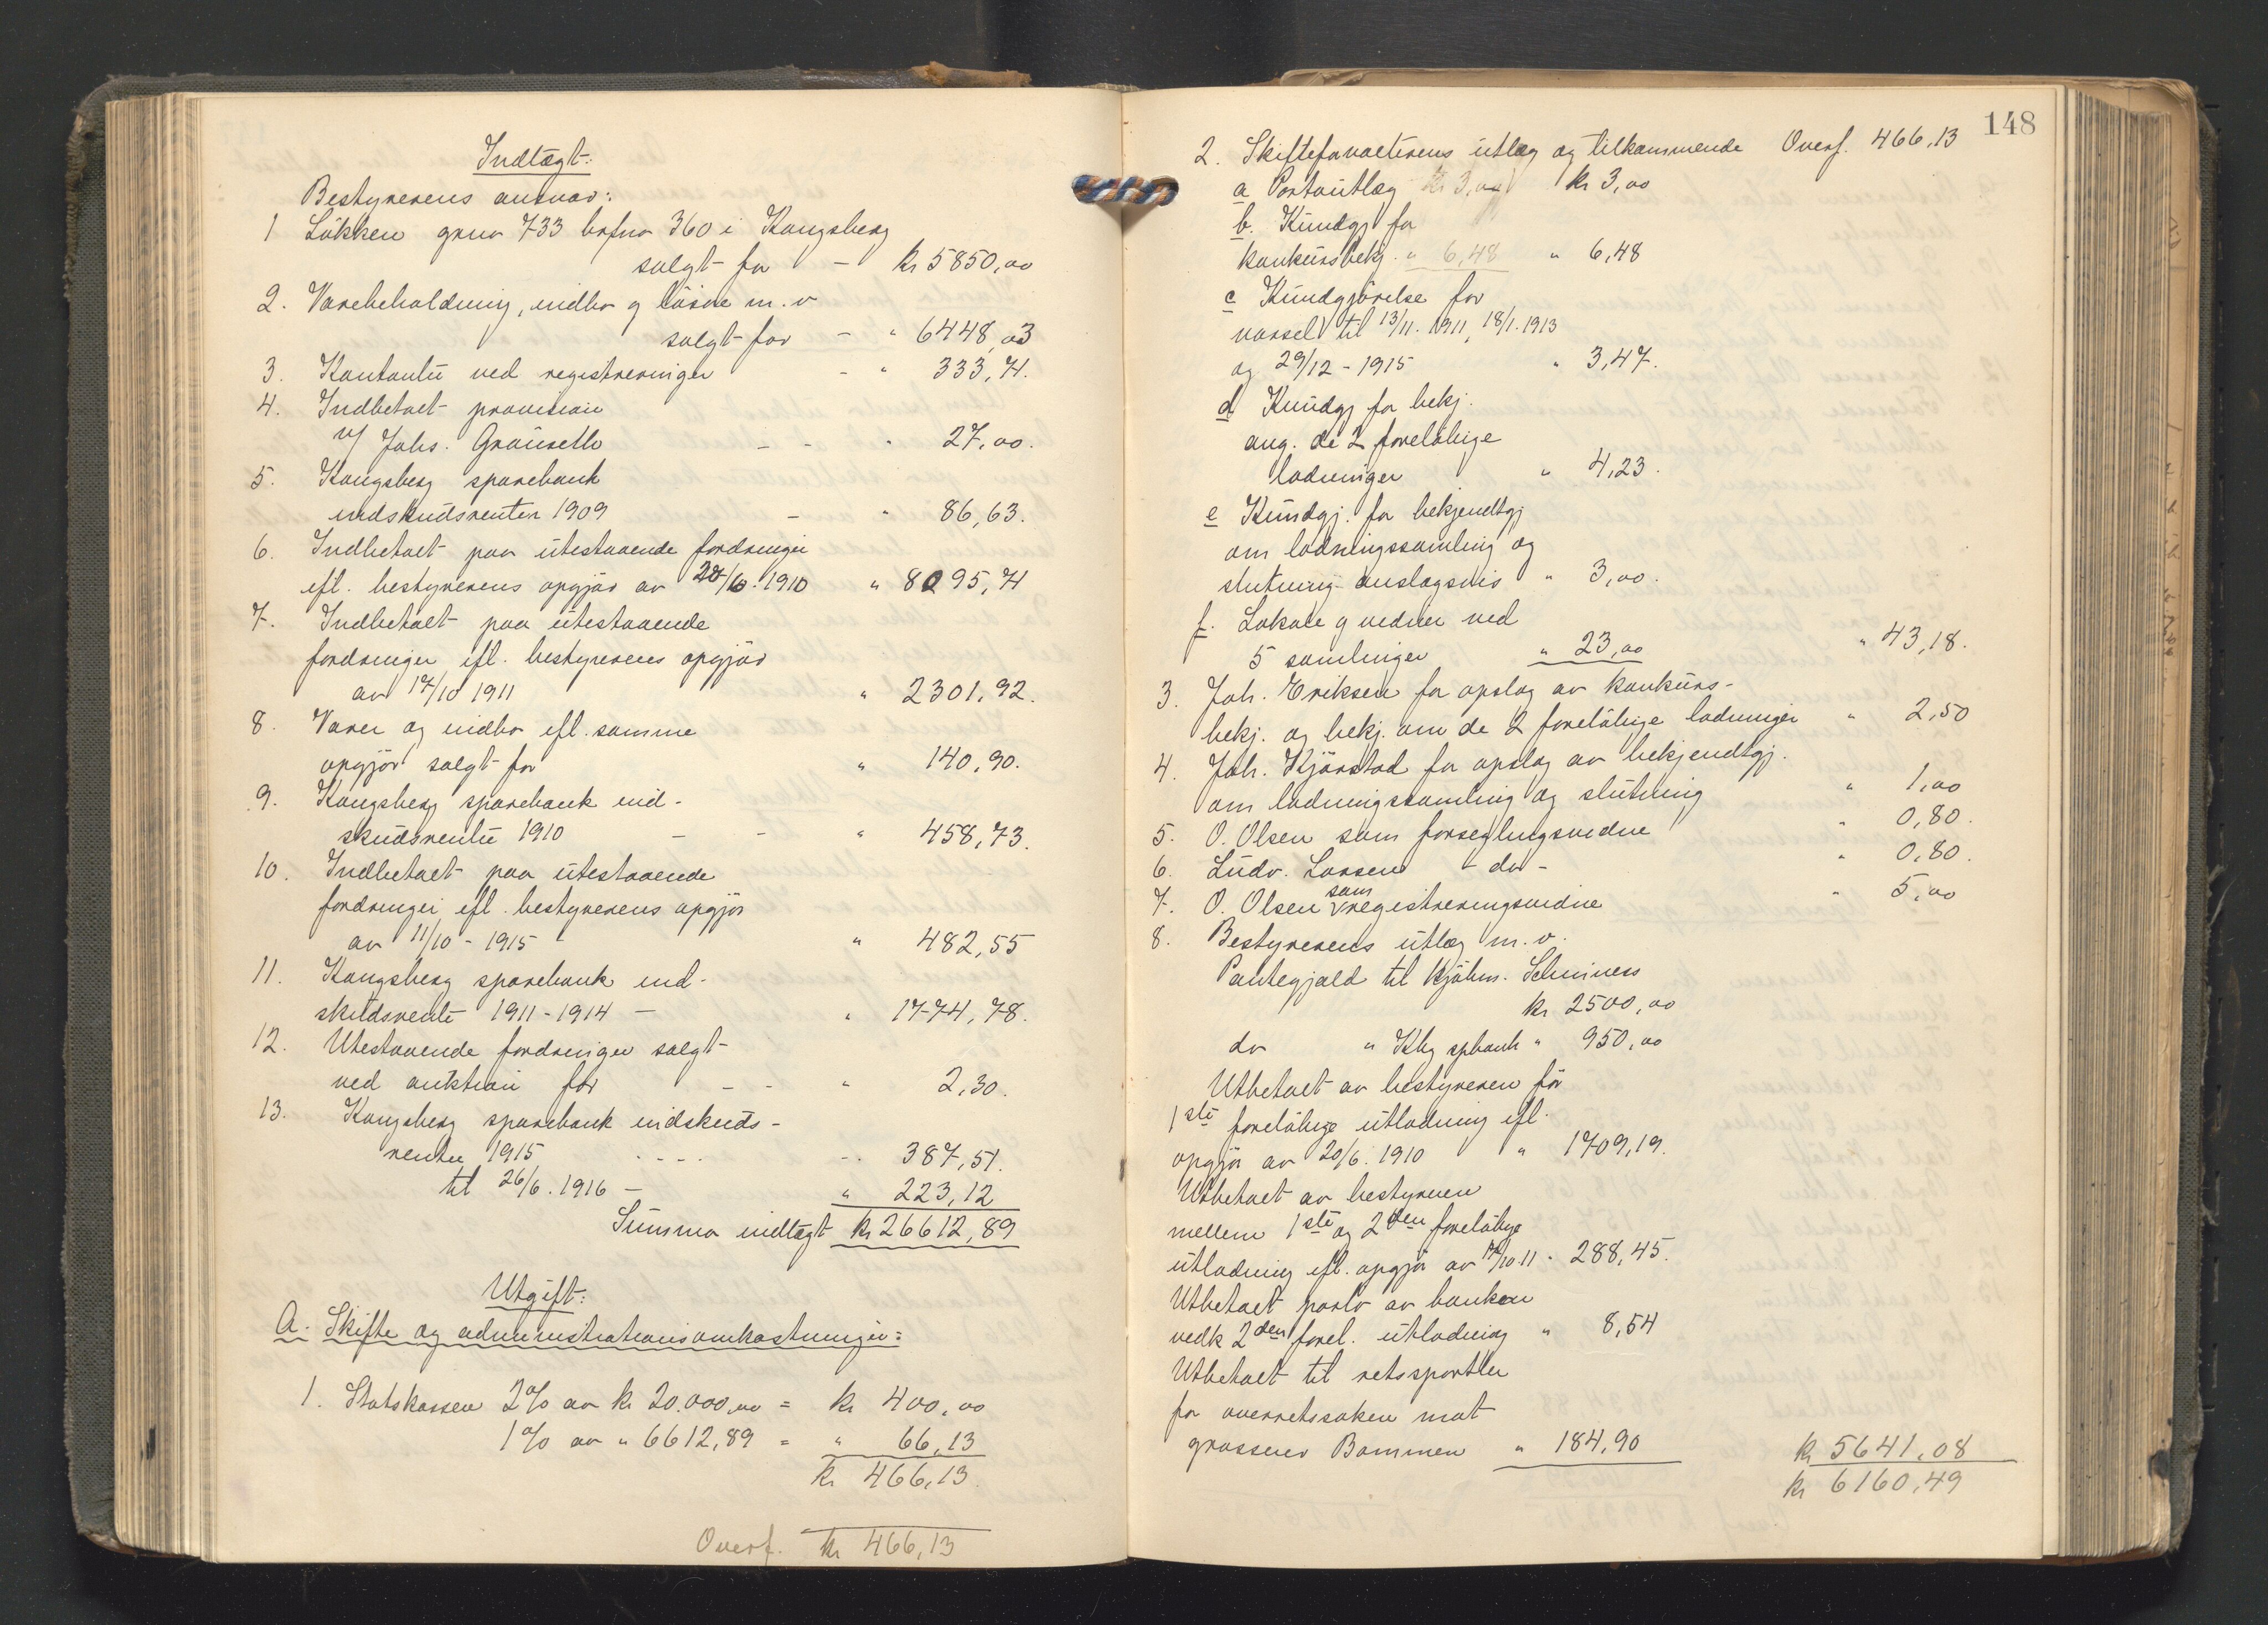 Indtægt:
Bestyrerens ansvar:
1 Løkken grno 733 brfno 360 i Kongsberg
solgt for - kr 5850,00
2. Varebeholdning, indbo og løsøre m.v
solgt for - " 6448,03
3. Kontanter ved registreringen - " 333,71.
4. Indbetalt provision
v/ Johs. Grønseth - - " 27,00.
5. Kongsberg sparebank
indskudsrenter 1909 - " 86,63.
6. Indbetalt paa utestaaende fordringer
efl. bestyrerens opgjør av 20/6.1910 " 8095,71
7. Indbetalt paa utestaaende
fordringer efl. bestyrerens opgjør
av 17/10 1911 " 2301,92.
8. Varer og indbo efl. samme
opgjør solgt for " 140,90.
9. Kongsberg sparebank ind-
skudsrente 1910 - - " 458,73.
10. Indbetalt paa utestaaende
fordringer efl. bestyrerens opgjør
av 11/10 - 1915 " 482,55
11. Kongsberg sparebank ind-
skudsrente 1911-1914 - " 1774,78.
12. Utestaaende fordringer solgt
ved auktion for - - " 2,30.
13. Kongsberg sparebank indskuds-
renter 1915 - - - - -. 387,51.
til 26/6.1916 - " 223,12
Summa indtægt kr 26612,89
Utgift:
A. Skifte og administrationsomkostninger:
1. Statskassen 2% av kr 20.000,00 = kr 400,00
1% av " 6612,89 = " 66,13
kr 466,13
Overf. kr 466,13
148
2. Skifteforvalterens utlæg og tilkommende Overf. 466,13
a Portoutlæg kr 3,00 kr 3,00
b. Kundgj for
konkursbekj. " 6,48 " 6,48
c Kundgjørelse for
varsel til 13/11.1911, 18/1.1913
og 29/12 - 1915 " 3,47.
d Kundgj for bekj.
ang. de 2 foreløbige
lodninger " 4,23.
e Kundgj. for bekjendtgj
om lodningssamling og
slutning anslagsvis " 3,00.
f. Lokale og vidner ved
5 samlinger " 23,00 " 43,18.
3. Joh. Eriksen for opslag av konkurs-
bekj. og bekj. om de 2 foreløbige lodninger " 2,50
4. Joh. Kjørstad for opslag av bekjendtgj.
om lodningssamling og slutning " 1,00
5. O. Olsen som forseglingsvidne " 0,80.
6. Ludv. Larsen - do - " 0,80.
7. O. Olsen som registreringsvidne " 5,00
8. Bestyrerens utlæg m.v.
Pantegjæld til kjøbm. Schwiness
kr 2500,00
do " Kbg spbank " 950,00
Utbetalt av bestyreren før
1ste foreløbige utlodning efl.
opgjør av 20/6.1910 " 1709,19.
Utbetalt av bestyreren
mellem 1ste og 2den foreløbige
utlodning efl. opgjør av 17/10 11 " 288,45.
Utbetalt porto av banken
vedk 2den forel. utlodning " 8,54
Utbetalt til retssportler
for overretssaken mot
grosserer Bommen " 184,90 kr 5641,08
kr 6160,49